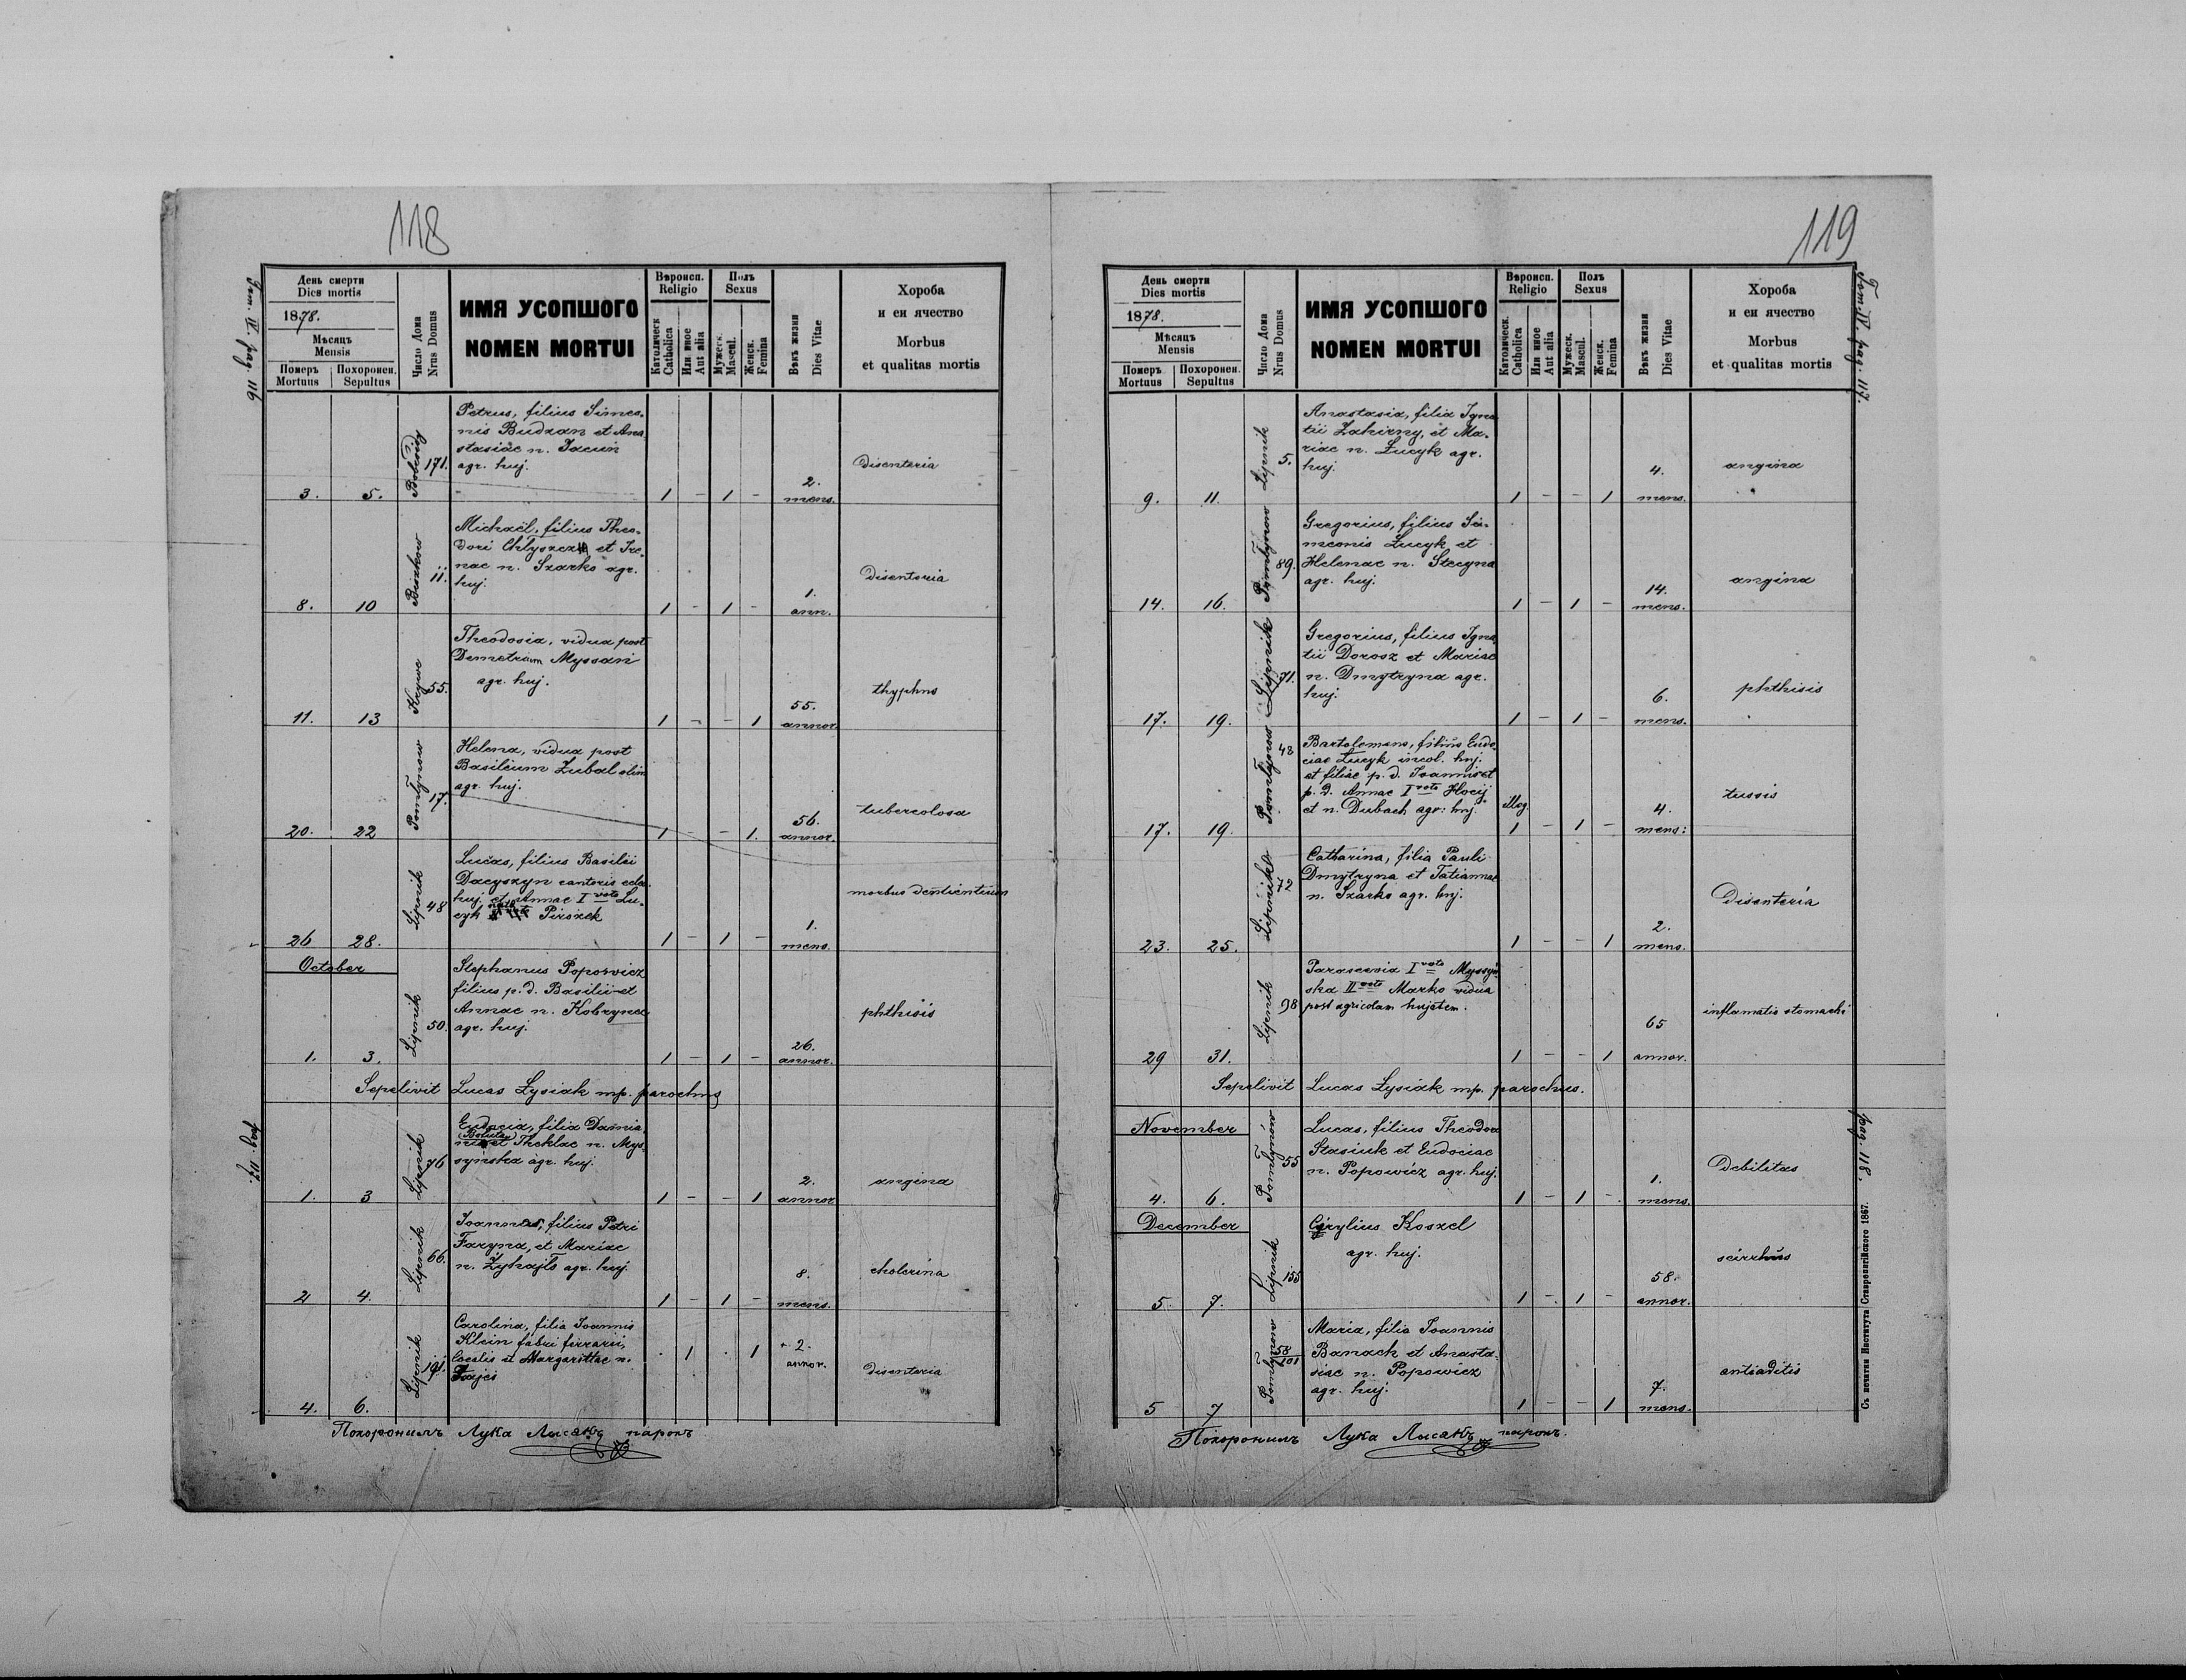 118
Tom. IV. pag. 116
День смерти
Dies mortis
1878.
Мѣсяцъ
Mensis
Померъ
Mortuus
Похоронен.
Sepultus
Число Дома
Nrus Domus
ИМЯ УСОПШОГО
NOMEN MORTUI
Вѣроисп.
Religio
Католическ.
Catholica
Или иное
Aut alia
Полъ
Sexus
Мужеск.
Mascul.
Женск.
Femina
Вѣкъ жизни
Dies Vitae
Хороба
и еи ячество
Morbus
et qualitas mortis
3. 5. 171.
Petrus, filius Simeo-
nis Budzan et Ana-
stasiae n. Jacun
agr. huj.
1 - 1 - 2. mens. Disenteria
8. 10 Buszkow 11.
Michaël, filius Theo-
dori et Ire-
nae n. Szarko agr.
huj.
1 - 1 - 1. ann. Disenteria
11. 13 Krywe 55.
Theodosia, vidua post
Demetrium Myssani
agr. huj.
1 - - 1 55. annor. thyphus
20. 22 Pomlynow 17.
Helena, vidua post
Basilium Zubal olim
agr. huj.
1 - - 1. 56. annor. tubercolosa
26 28. Lipnik 48
Lucas, filius Basilii
Dacyszyn cantoris eccla.
huj. et Annae I voto Lu-
cyk nata Pirozek
1 - 1 - 1. mens. morbus dentientium
October
1. 3. Lipnik 50.
Stephanus Popowicz
filius p. d. Basilii et
Annae n. Kobryna
agr. huj.
1 - 1 - 26. annor. phthisis
Sepelivit Lucas Łysiak mp. parochus
pag. 117.
1. 3 Lipnik 76
Eudocia, filia Damia-
ni et Theklae n. Mys-
synska agr. huj.
1 - - 1 2. annor angina
2 4. Lipnik 66.
Joannes, filius Petri
Faryna, et Mariae
n. Zyhajlo agr. huj
1 - 1 - 8. mens. cholerina
4. 6. Lipnik 191.
Carolina, filia Joannis
Klein fabri ferrarii,
localis et Margarittae n.
. 1 . 1 2. annor. disenteria
Похоронилъ Лука Лысакъ парохъ
119
Tom. IV. pag. 117.
День смерти
Dies mortis
1878.
Мѣсяцъ
Mensis
Померъ
Mortuus
Похоронен.
Sepultus
Число Дома
Nrus Domus
ИМЯ УСОПШОГО
NOMEN MORTUI
Вѣроисп.
Religio
Католическ.
Catholica
Или иное
Aut alia
Полъ
Sexus
Мужеск.
Mascul.
Женск.
Femina
Вѣкъ жизни
Dies Vitae
Хороба
и еи ячество
Morbus
et qualitas mortis
9. 11. Lipnik 5.
Anastasia, filia Igna-
tii Zahirny, et Ma-
riae n. Łucyk agr.
huj.
1 - - 1 4. mens. angina
14. 16. Pomlynow 89.
Gregorius, filius Si-
meonis Łucyk et
Helenae n. Stecyna
agr. huj.
1 - 1 - 14. mens. angina
17. 19. Lipnik 71.
Gregorius, filius Igna-
tii Dorosz et Mariae
n. Dmytryna agr.
huj.
1 - 1 - 6. mens. phthisis
17. 19. Pomlynow 48
Bartolomeus, filius Eudo-
ciae Łucyk incol. huj.
et filiae p. d. Joannis et
p. d. Annae I voto Hocij
et n. Dubach agr. huj.
illeg. 1 - 1 - 4. mens: tussis
23. 25. Lipnik 72
Catharina, filia Pauli
Dmytryna et Tatiannae
n. Szarko agr. huj.
1 - - 1 2. mens. Disenteria
29 31. Lipnik 98
Parascevia I voto Myssyn-
ska II voto Marko vidua
post agricolam hujatem.
1 - - 1 65 annor. inflamatio stomachi
Sepelivit Lucas Łysiak mp. parochus.
pag. 118.
November
4. 6. Pomlynow 55
Lucas, filius Theodora
Stasiuk et Eudociae
n. Popowicz agr. huj.
1 - 1 - 1. mens. Debilitas
December
5. 7. Lipnik 155
Cyrylius Koszel
agr. huj.
1 - 1 - 58. annor. scirrhus
5 7 Pomlynow 58/101
Maria, filia Joannis
Banach et Anasta-
siae n. Popowicz
agr. huj.
1 - - 1 7. mens.
Похоронилъ Лука Лысакъ парохъ.
Съ печатни Института Ставропигійского 1867.